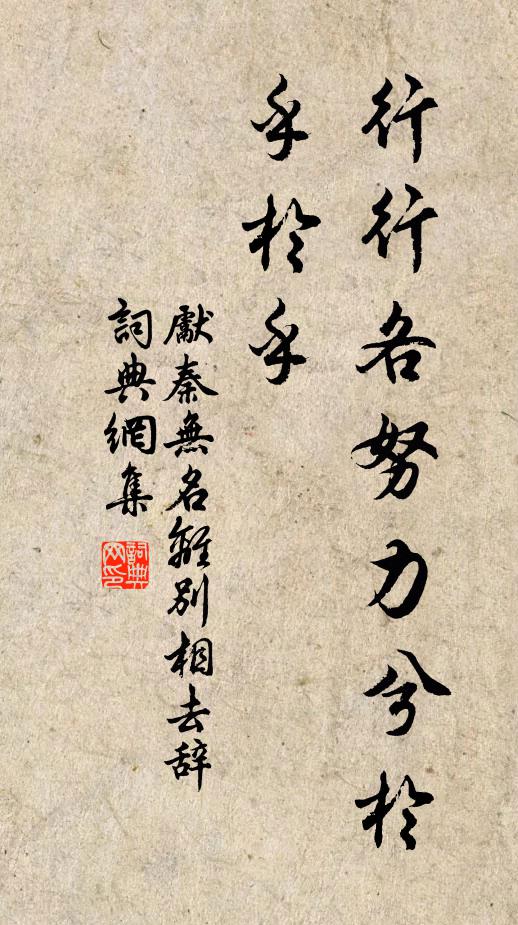 行行各努力兮於
乎於乎
獻秦無名離別相去辞
詞典網集
詞典网印